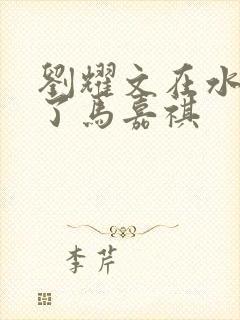 劉耀文在水
了馬嘉祺
李芹